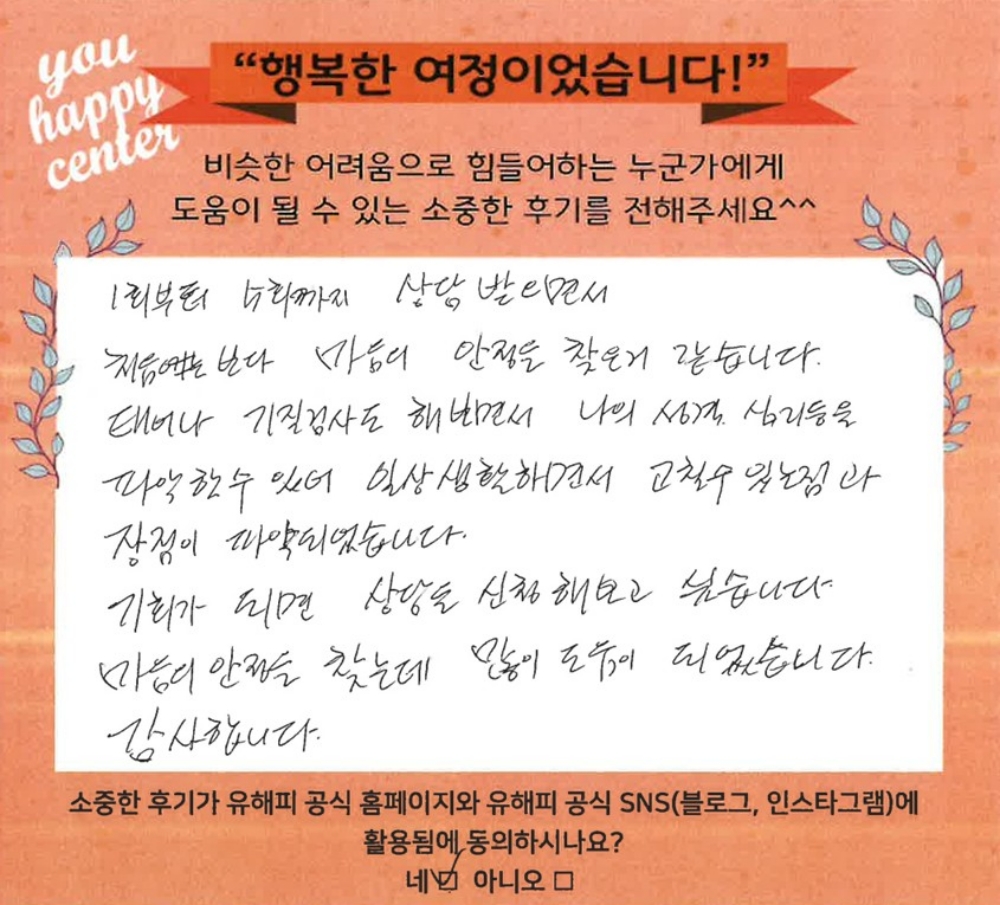 you
happy
center
“행복한 여정이었습니다!”
비슷한 어려움으로 힘들어하는 누군가에게
도움이 될 수 있는 소중한 후기를 전해주세요^^
1회부터 4회까지 상담 받으면서
처음에는 보다 마음의 안정을 찾은거 같습니다.
태어나 기질검사도 해보면서 나의 성격, 심리등을
파악할수 있어 일상생활하면서 고칠수 있는점과
장점이 파악되었습니다.
기회가 되면 상담도 신청해보고 싶습니다
마음의 안정을 찾는데 많이 도움이 되었습니다.
감사합니다.
소중한 후기가 유해피 공식 홈페이지와 유해피 공식 SNS(블로그, 인스타그램)에
활용됨에 동의하시나요?
네 ☑ 아니오 □